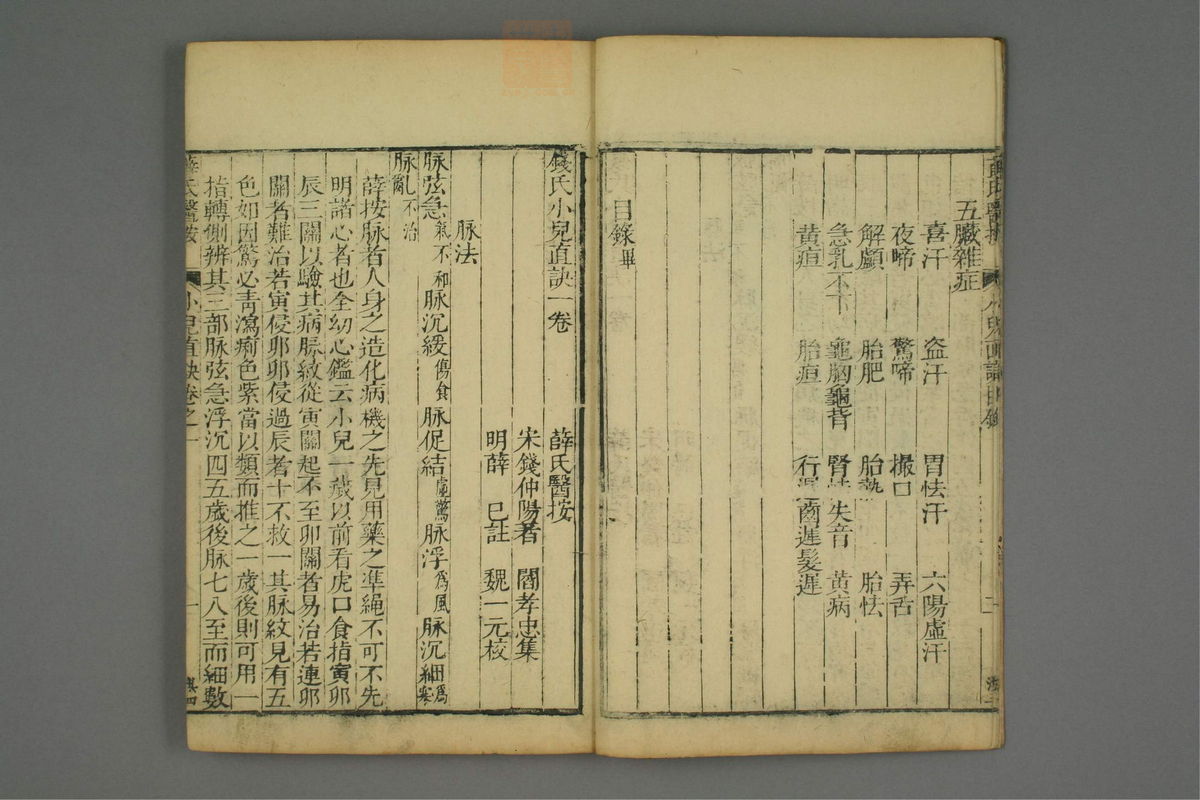 五臟雜症
喜汗 盜汗 胃怯汗 六陽虛汗
夜啼 驚啼 撮口 弄舌
解顱 胎肥 胎熱 胎怯
急乳不下 龜胸龜背 腎怯失音 黃病
黃疸 胎疸 行遲 齒遲髮遲
目錄畢
錢氏小兒直訣一卷
薛氏醫按
宋錢仲陽著 閻孝忠集
明薛 已註 魏一元校
脉法
脉弦急氣不和 脉沉緩傷食 脉促結虛驚 脉浮爲風 脉沉細爲寒
脉亂不治
薛按脉者人身之造化病機之先見用藥之準繩不可不先
明諸心者也全幼心鑑云小兒一歲以前看虎口食指寅卯
辰三關以驗其病脉紋從寅關起不至卯關者易治若連卯
關者難治若寅侵卯卯侵過辰者十不救一其脉紋見有五
色如因驚必青瀉痢色紫當以類而推之一歲後則可用一
指轉側辨其三部脉弦急浮沉四五歲後脉七八至而細數
薛氏醫按 小兒直訣卷之一 一